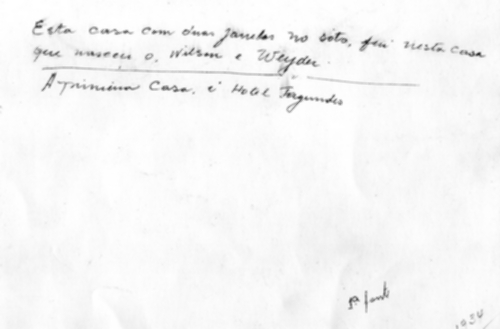 Esta casa com duas janelas no soto, foi nesta casa
que nasceu o, Wilson e Weyder
A primeira Casa. é Hotel Fagundes
1934